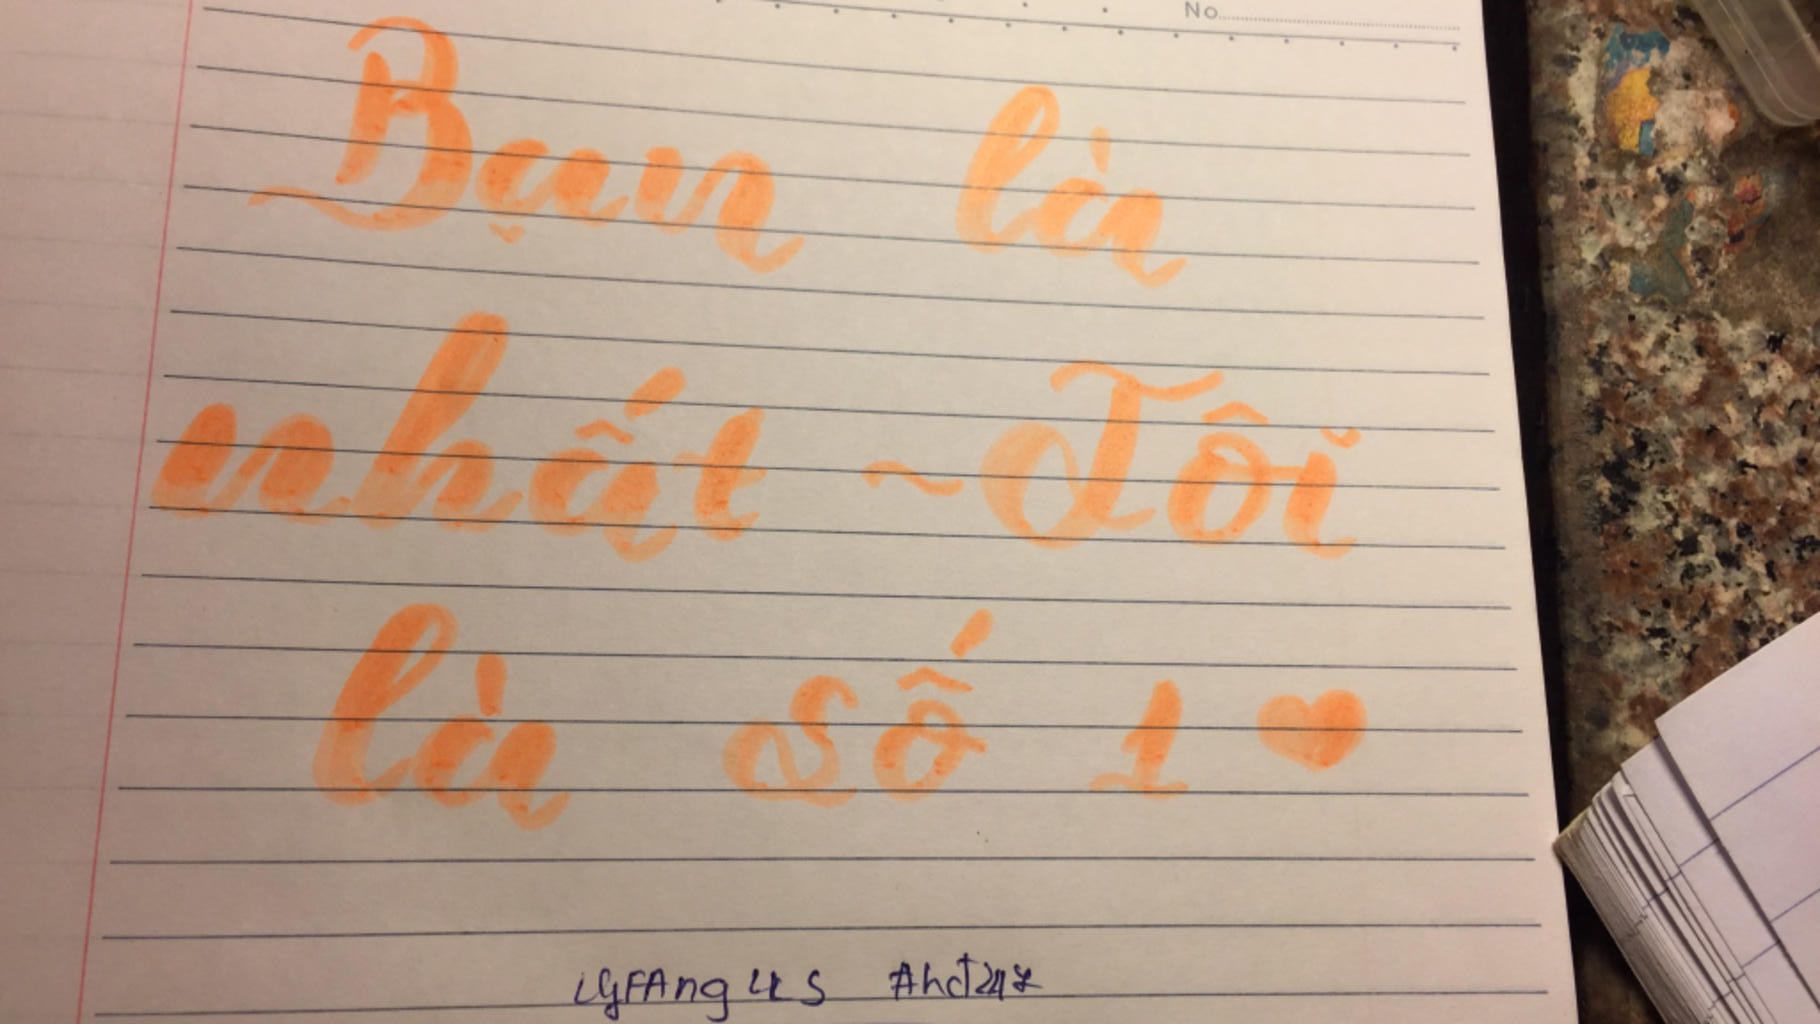 No
Bạn là
nhất ~ Tôi
là số 1